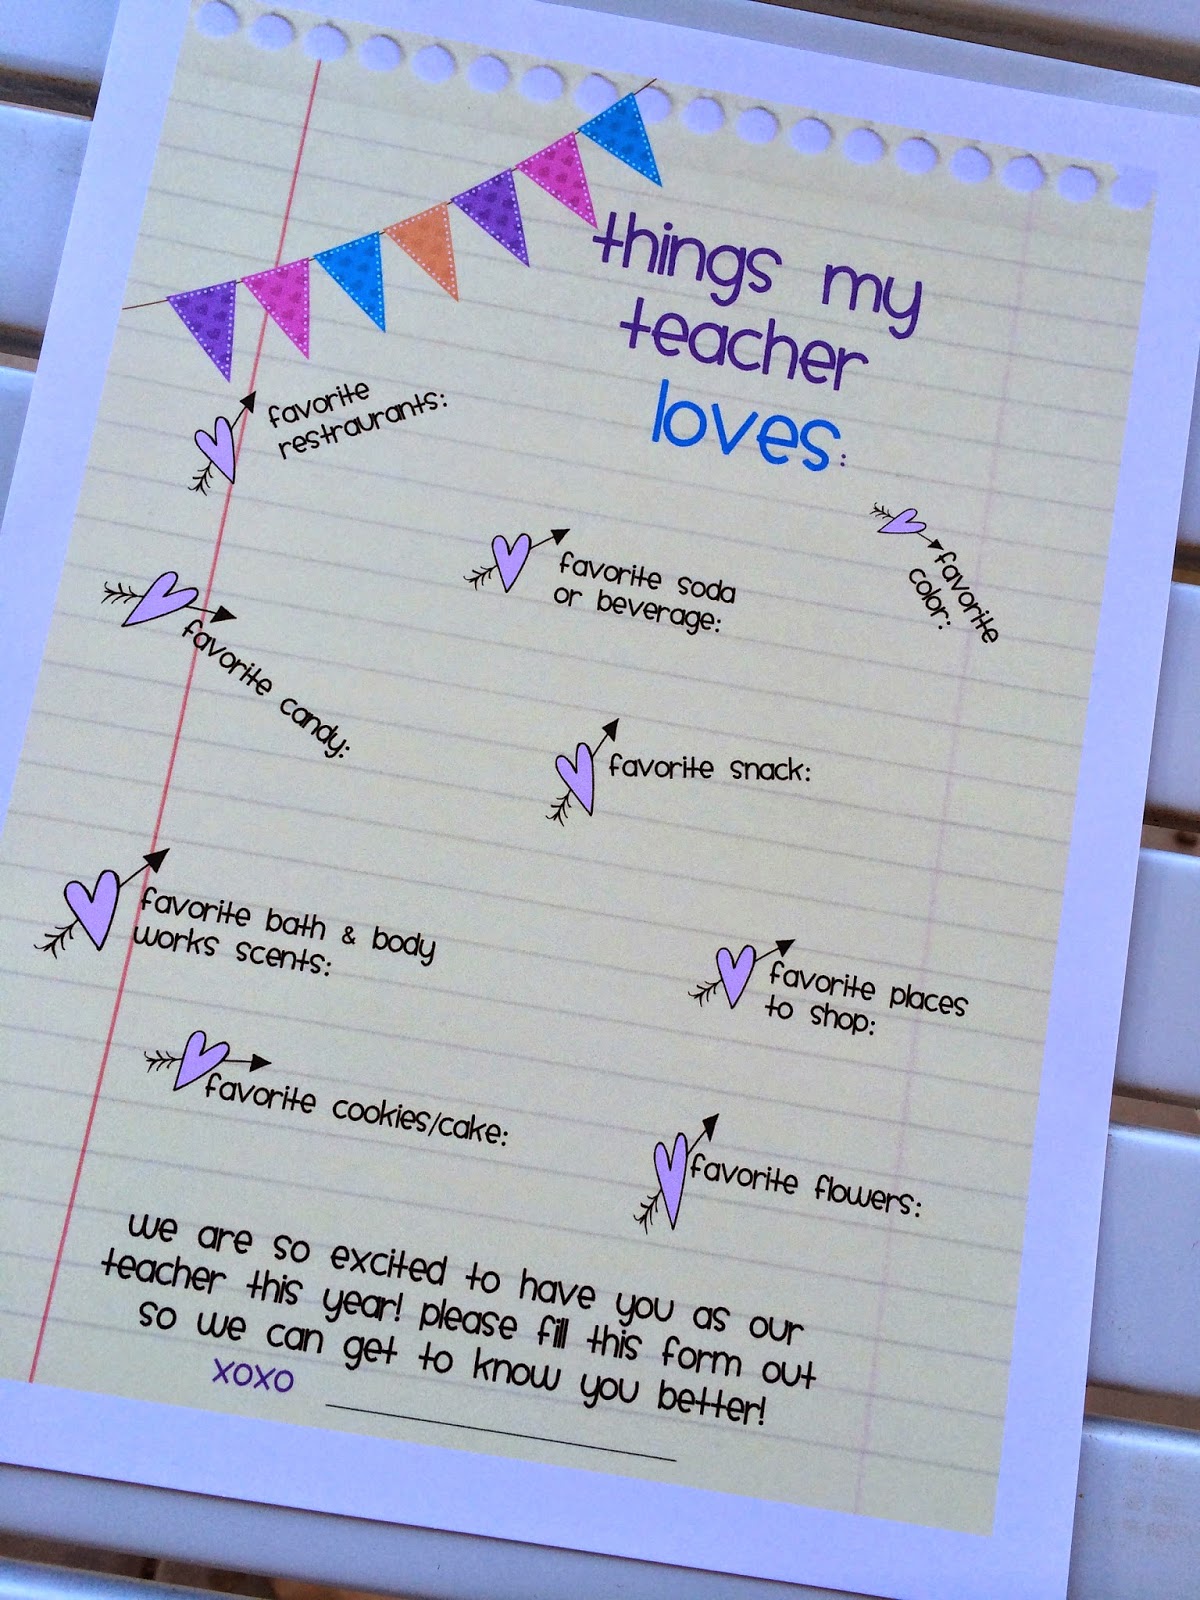 things my
teacher
loves:
favorite
restraurants:
favorite soda
or beverage:
favorite
color:
favorite candy:
favorite snack:
favorite bath & body
works scents:
favorite places
to shop:
favorite cookies/cake:
favorite flowers:
we are so excited to have you as our
teacher this year! please fill this form out
so we can get to know you better!
xoxo